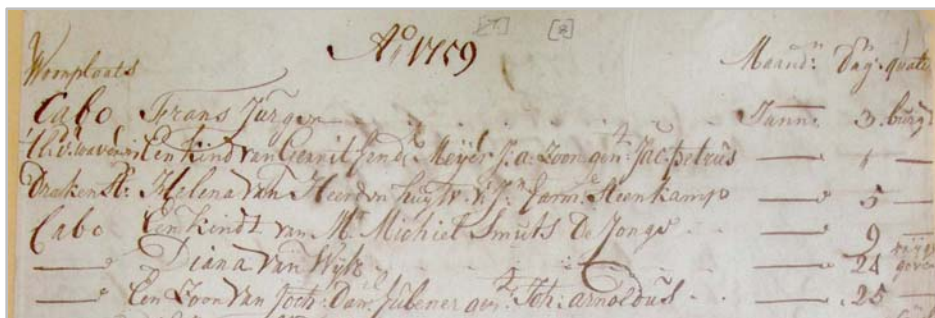 [7] [8]
Ao 1759
Woonplaats Maandn: Dagn: qualit
Cabo Frans Jurgen Jann: 3 burg
't Lt. v. waveren Een kind van Gerrit Meijer J. a. Zoon gent: Jac: petrus 1
Draken St: Helena van Heerden huijsv: v: Jn harm: Steenkamp 5
Cabo Een kindt van Mr Michiel Smuts De Jonge 9
Diana van Wijk 24
Een Zoon van Joch: Danl Hubener gent: Joh: arnoldus 25